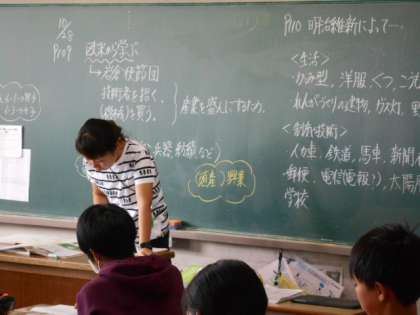 10/28
P109
欧米から学ぶ
→岩倉使節団
技術者を招く。
(機械)を買う。
産業を盛んにするため。
兵器、紡績など
(殖産)興業
P110 明治維新によって…
<生活>
かみ型、洋服、くつ、こう
れんがづくりの建物、ガス灯、
<制度・技術>
人力車、鉄道、馬車、新聞
郵便、電信(電報)、太陽
学校